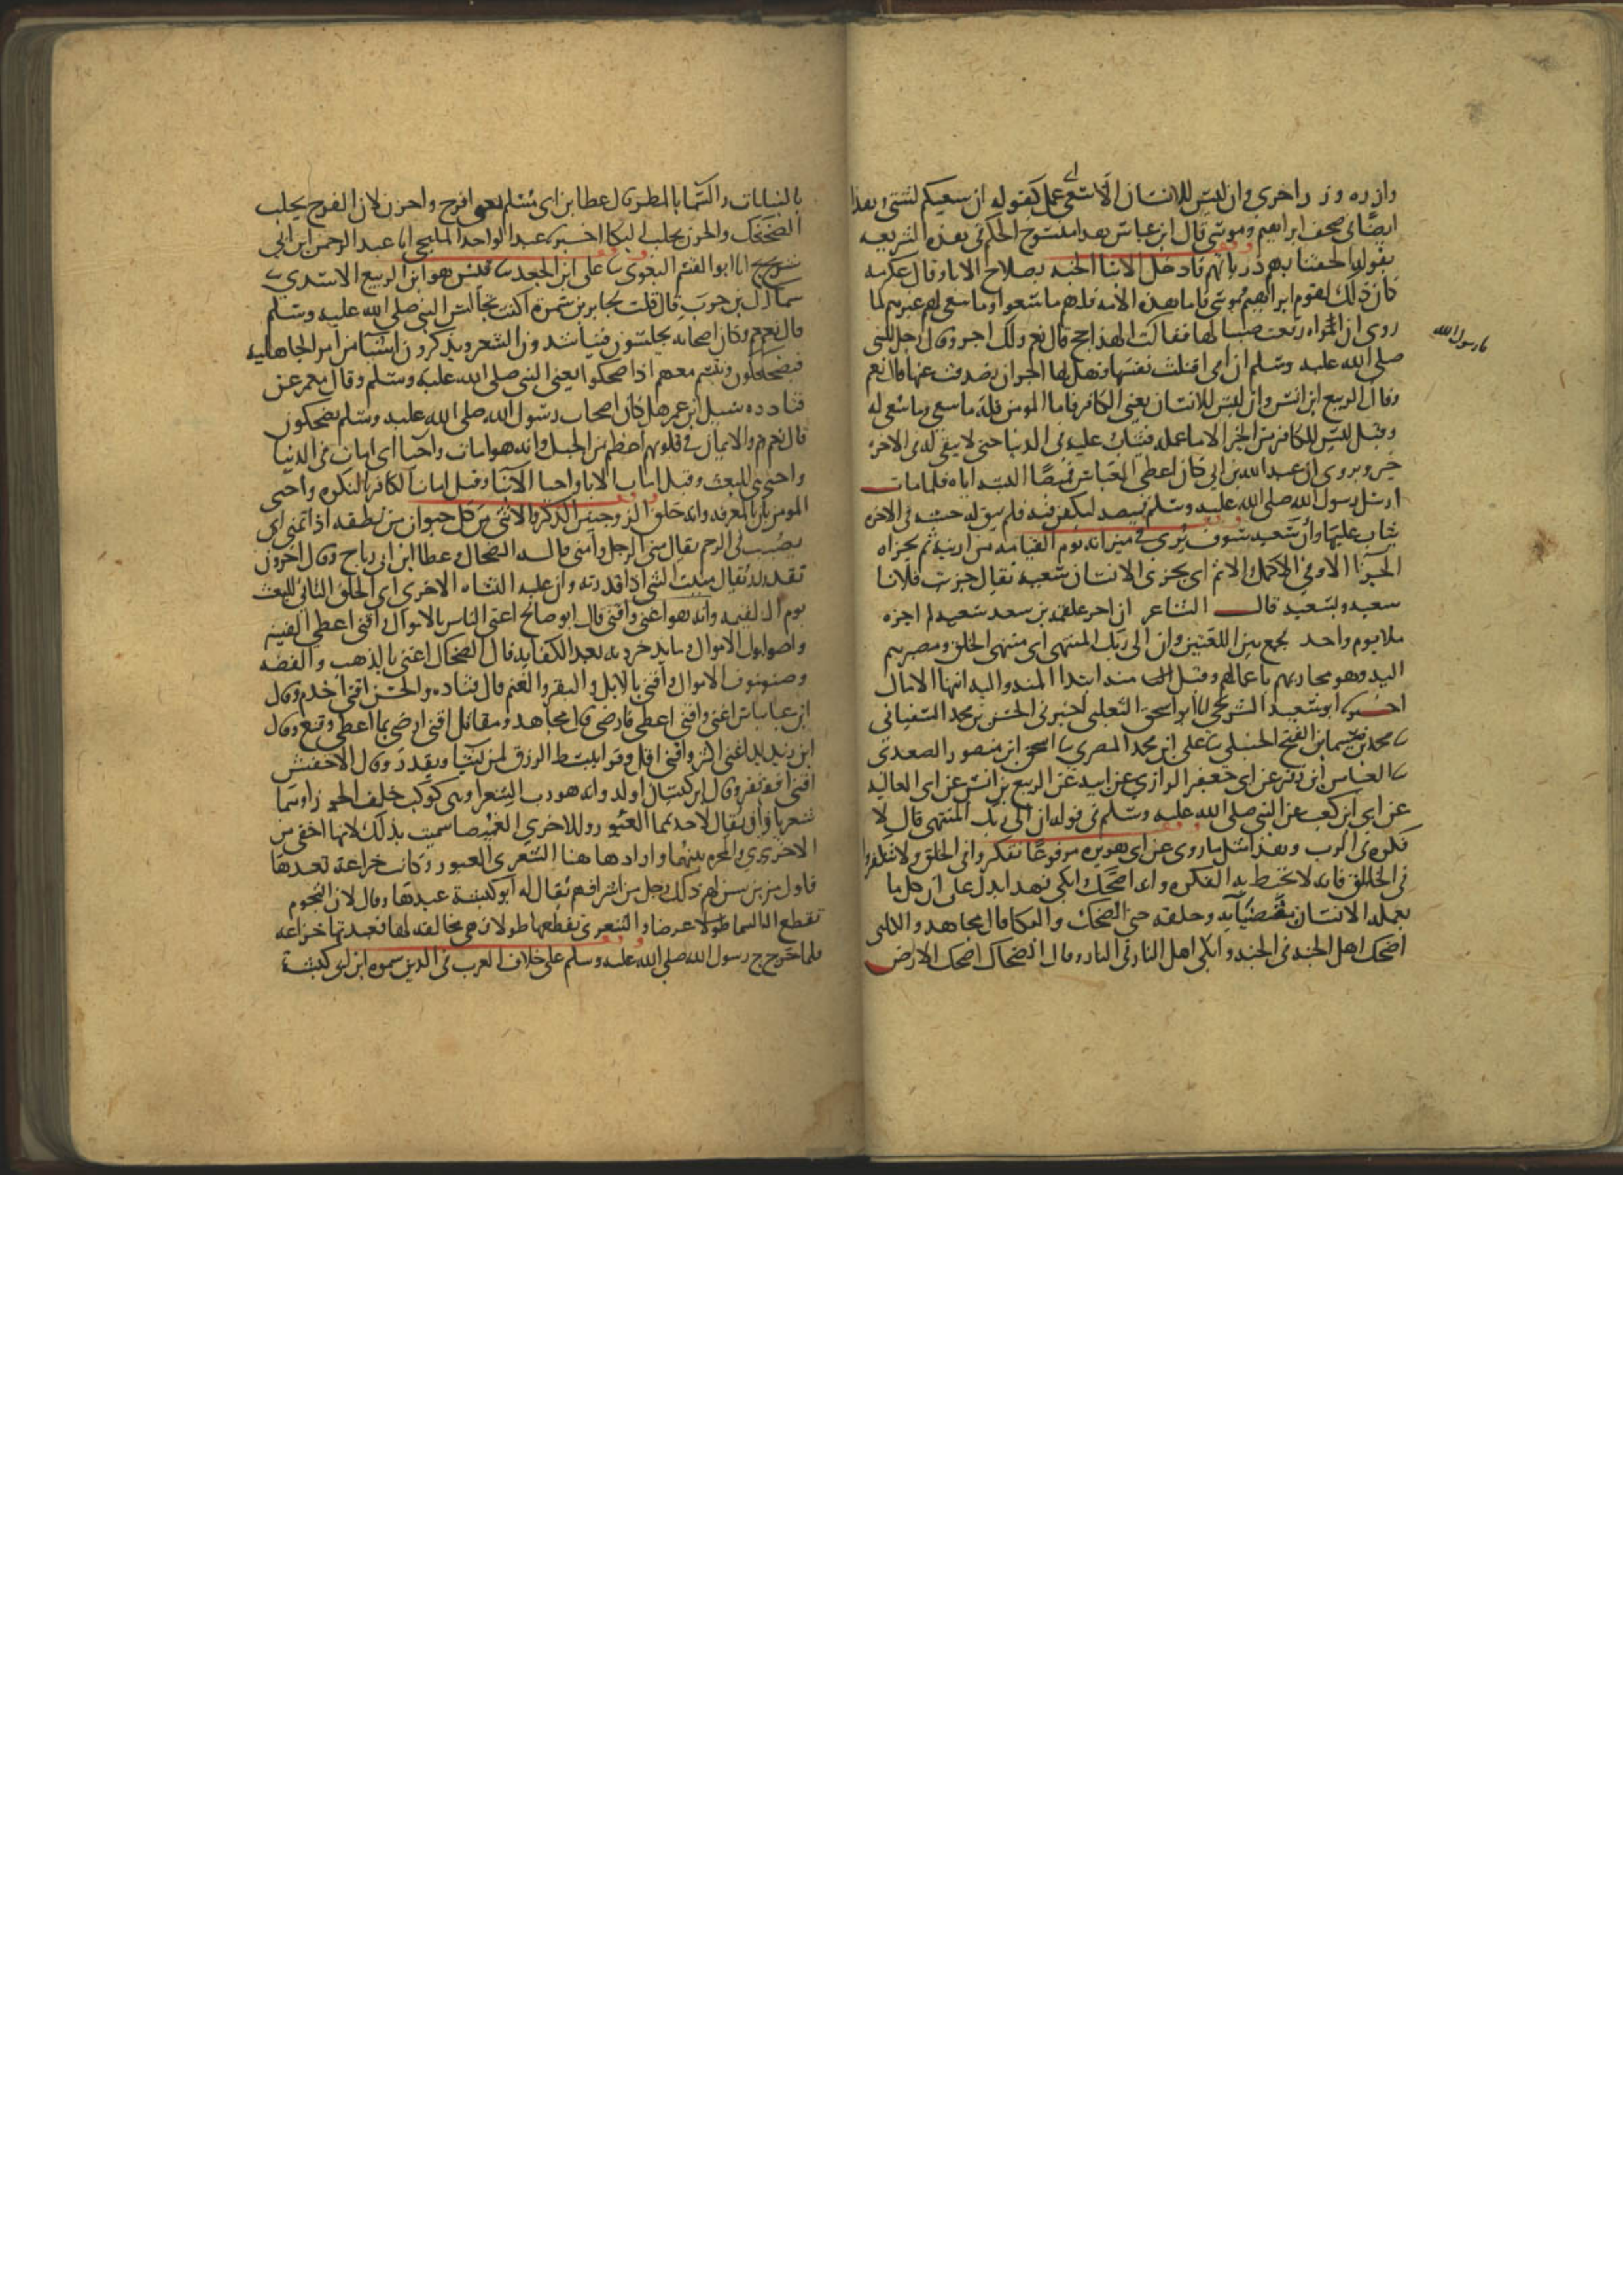 وازره وزر اخرى وان ليس للانسان الا ما سعى اى عمل كقوله ان سعيكم لشتى وهذا
ايضا فى صحف ابراهيم وموسى قال ابن عباس هذا منسوخ الحكم فى هذه الشريعه
بقوله الحقنا بهم ذرياتهم فادخل الابنا الجنه بصلاح الابا وقال عكرمه
كان ذلك لقوم ابراهيم وموسى فاما هذه الامه فلهم ما سعوا وما سعى لهم غيرهم لما
روى ان امراه رفعت صبيا لها فقالت الهذا حج قال نعم ولك اجر وقال رجل للنبى
يا رسول الله
صلى الله عليه وسلم ان امى افتلتت نفسها فهل لها اجر ان تصدقت عنها قال نعم
وقال الربيع ابن انس وان ليس للانسان يعنى الكافر فاما المومن فله ما سعى وما سعى له
وقيل ليس للكافر من الخير الا ما عمله فيثاب عليه فى الدنيا حتى لا يبقى له فى الاخره
خير ويروى ان عبد الله بن ابى كان اعطى العباس قميصا البسه اياه فلما مات
ارسل رسول الله صلى الله عليه وسلم قميصه ليكفن فيه فلم يبق له حسنه فى الاخره
يثاب عليها وان سعيه سوف يرى فى ميزانه يوم القيامه من اريته ثم يجزاه
الجزا الاوفى الاكمل الاتم اى يجزى الانسان سعيه يقال جزيت فلانا
سعيه وبسعيه قال الشاعر ان اجز علقمه بن سعد سعيه لم اجزه
ببلا يوم واحد يجمع بين اللغتين وان الى ربك المنتهى اى منتهى الخلق ومصيرهم
اليه وهو مجازيهم باعمالهم وقيل منه ابتدا المنه واليه انتها الامال
اخبرنا ابو سعيد الشريحى انا ابو اسحق الثعلبى اخبرنى الحسن بن محمد السفيانى
ثنا محمد بن سيما بن الفتح الحنبلى ثنا على ابن محمد المصرى ثنا اسحق ابن منصور الصعدى
ثنا العباس ابن زفر عن ابى جعفر الرازى عن ابيه عن الربيع بن انس عن ابى العاليه
عن ابى ابن كعب عن النبى صلى الله عليه وسلم فى قوله ان الى ربك المنتهى قال لا
فكره فى الرب وهذا مثل ما روى عن ابى هريره مرفوعا تفكروا فى الخلق ولا تتفكروا
فى الخالق فانه لا تحيط به الفكره وانه اضحك وابكى فهذا يدل على ان كل ما
يعمله الانسان بقضائه وخلقه حتى الضحك والبكا قال مجاهد والكلبى
اضحك اهل الجنه فى الجنه وابكى اهل النار فى النار وقال الضحاك اضحك الارض
بالنبات والسما بالمطر قال عطا بن ابى مسلم يعنى افرح واحزن لان الفرح يجلب
الضحك والحزن يجلب البكا اخبرنا عبد الواحد المليحى انا عبد الرحمن ابن ابى
شريح انا ابو القسم البغوى ثنا على ابن الجعد ثنا قيس هو ابن الربيع الاسدى ثنا
سماك بن حرب قال قلت لجابر بن سمره اكنت تجالس النبى صلى الله عليه وسلم
قال نعم وكان اصحابه يجلسون فيتناشدون الشعر ويذكرون اشيا من امر الجاهليه
فيضحكون وتبسم معهم اذا ضحكوا يعنى النبى صلى الله عليه وسلم وقال معمر عن
قتاده سيل ابن عمر هل كان اصحاب رسول الله صلى الله عليه وسلم يضحكون
قال نعم والايمان فى قلوبهم اعظم من الجبل وانه هو امات واحيا اى امات فى الدنيا
واحيى للبعث وقيل امات الابا واحيا الابنا وقيل امات الكافر بالنكره واحيى
المومن بالمعرفه وانه خلق الزوجين الذكر والانثى من كل حيوان من نطفه اذا تمنى اى
تصب فى الرحم يقال منى الرجل وامنى قاله الضحاك وعطا ابن ابى رباح وقال اخرون
تقدر يقال منيت الشى اذا قدرته وان عليه النشاه الاخرى اى الخلق الثانى للبعث
يوم القيمه وانه هو اغنى واقنى قال ابو صالح اغنى الناس بالاموال واقنى اعطى القنيه
واصول الاموال وما يدخرونه بعد الكفايه قال الضحاك اغنى بالذهب والفضه
وصنوف الاموال واقنى بالابل والبقر والغنم قال قتاده والحسن اقنى اخدم وقال
ابن عباس اغنى واقنى اعطى فارضى قال مجاهد ومقاتل اقنى ارضى بما اعطى وقنع وقال
ابن زيد اغنى اكثر واقنى اقل وقرا يبسط الرزق لمن يشا ويقدر وقال الاخفش
اقنى افقر وقال ابن كيسان اولد وانه هو رب الشعرى وهى كوكب خلف الجوزا وهما
شعريان يقال لاحدهما العبور وللاخرى الغميصا سميت بذلك لانها اخفى من
الاخرى والمجره بينهما واراد هاهنا الشعرى العبور وكانت خزاعه تعبدها
فاول من سن لهم ذلك رجل من اشرافهم يقال له ابو كبشه عبدها وقال لان النجوم
تقطع السما عرضا والشعرى تقطعها طولا فهى مخالفه لها فعبدتها خزاعه
فلما خرج رسول الله صلى الله عليه وسلم على خلاف العرب فى الدين سموه ابن ابى كبشه